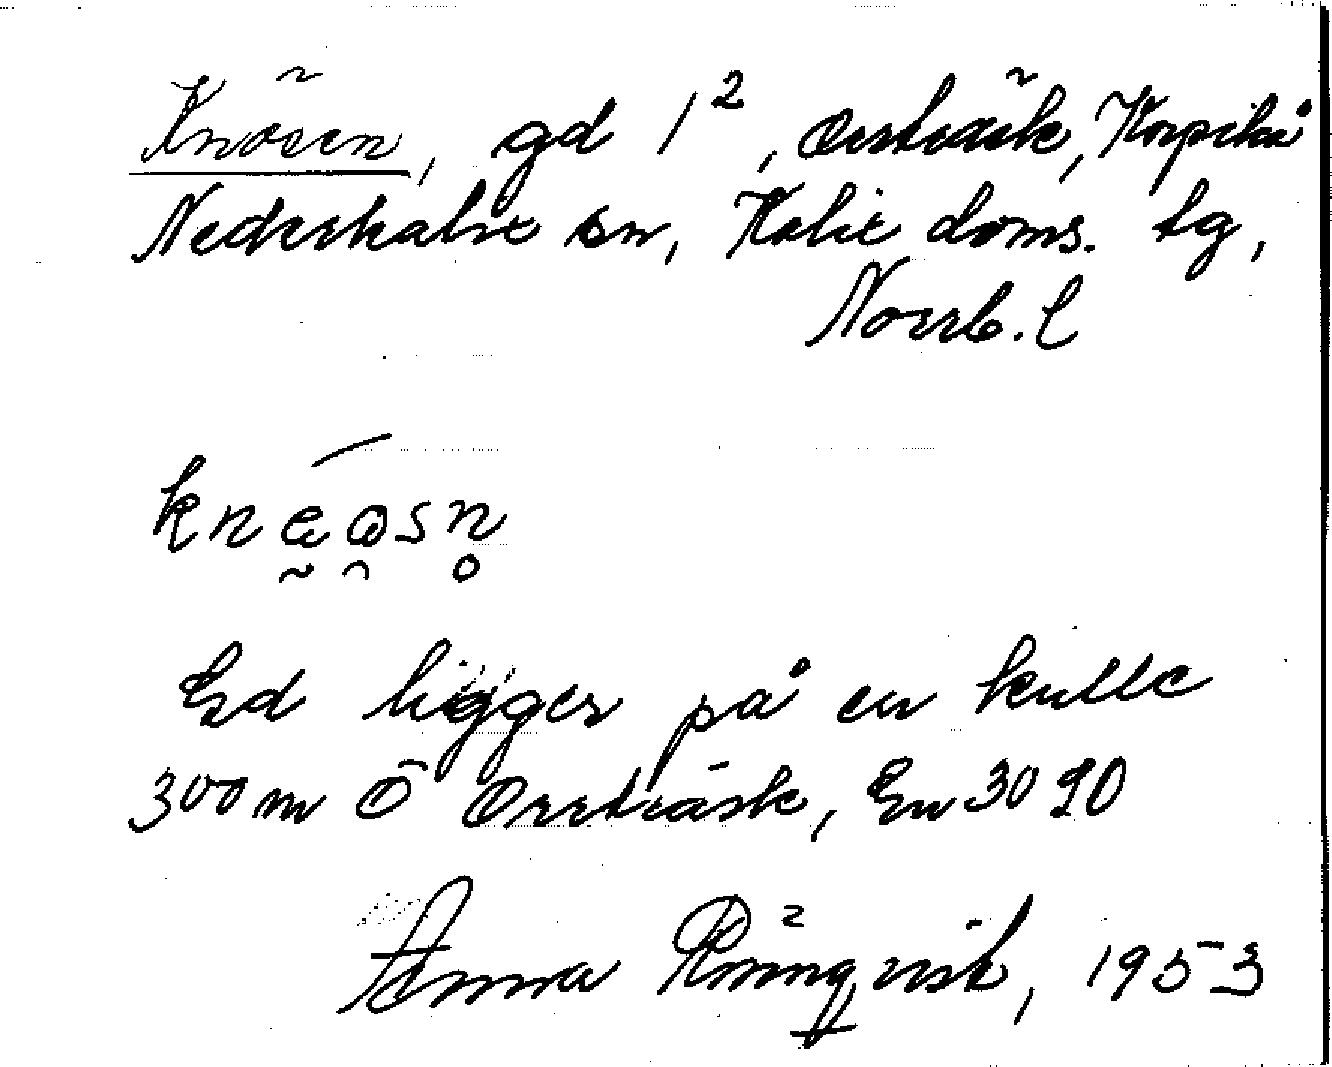 Knösen, gd 1², Orrträsk, Korpikå
Nederkalix sn, Kalix doms. tg,
Norrb. l
Gd ligger på en kulle
300 m Ö Orrträsk, En 3090
Anna Rönnqvist, 1953